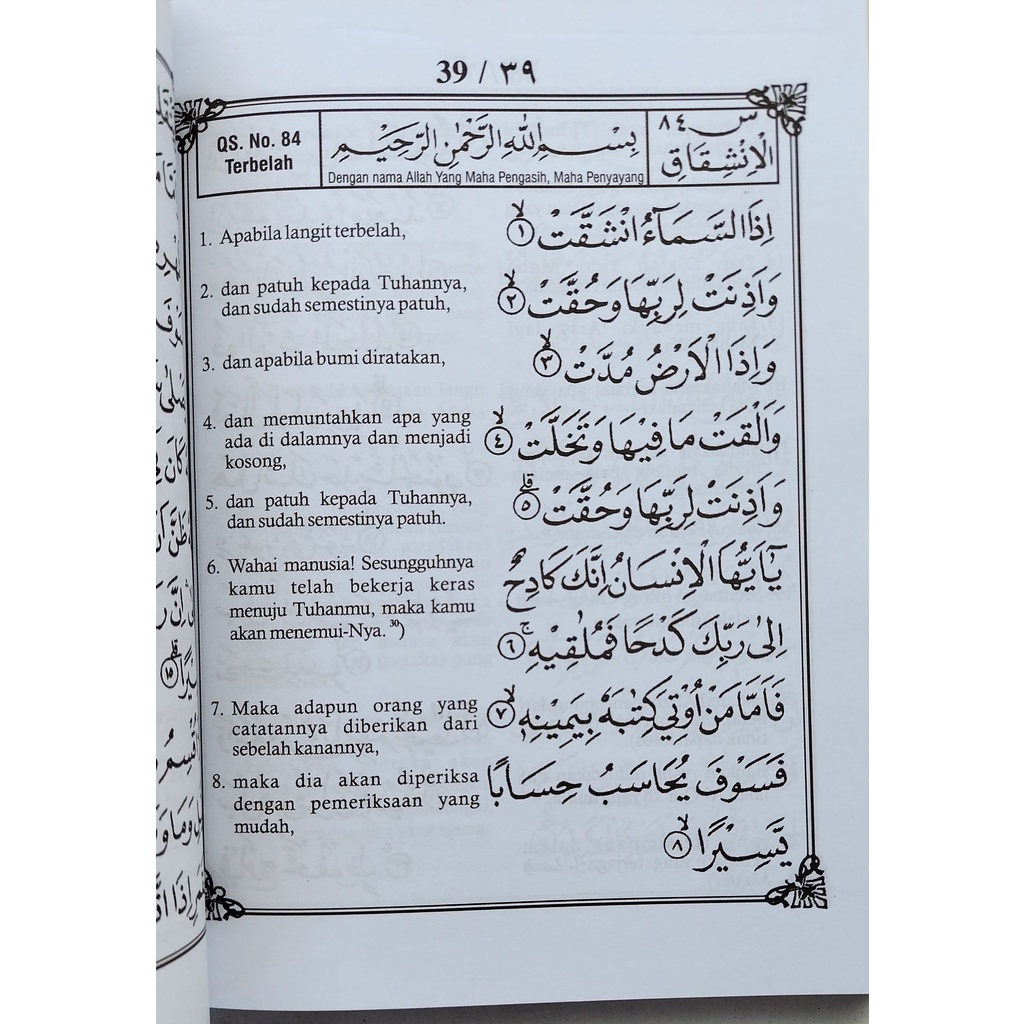 39 / ٣٩
QS. No. 84
Terbelah
بِسْمِ اللّٰهِ الرَّحْمٰنِ الرَّحِيْمِ
Dengan nama Allah Yang Maha Pengasih, Maha Penyayang
س ٨٤
الْاِنْشِقَاقِ
1. Apabila langit terbelah,
اِذَا السَّمَاۤءُ انْشَقَّتْۙ ١
2. dan patuh kepada Tuhannya,
dan sudah semestinya patuh,
وَاَذِنَتْ لِرَبِّهَا وَحُقَّتْۙ ٢
3. dan apabila bumi diratakan,
وَاِذَا الْاَرْضُ مُدَّتْۙ ٣
4. dan memuntahkan apa yang
ada di dalamnya dan menjadi
kosong,
وَاَلْقَتْ مَا فِيْهَا وَتَخَلَّتْۙ ٤
5. dan patuh kepada Tuhannya,
dan sudah semestinya patuh.
وَاَذِنَتْ لِرَبِّهَا وَحُقَّتْۗ ٥
6. Wahai manusia! Sesungguhnya
kamu telah bekerja keras
menuju Tuhanmu, maka kamu
akan menemui-Nya. 30)
يٰٓاَيُّهَا الْاِنْسَانُ اِنَّكَ كَادِحٌ
اِلٰى رَبِّكَ كَدْحًا فَمُلٰقِيْهِۚ ٦
7. Maka adapun orang yang
catatannya diberikan dari
sebelah kanannya,
فَاَمَّا مَنْ اُوْتِيَ كِتٰبَهٗ بِيَمِيْنِهٖۙ ٧
8. maka dia akan diperiksa
dengan pemeriksaan yang
mudah,
فَسَوْفَ يُحَاسَبُ حِسَابًا
يَّسِيْرًاۙ ٨